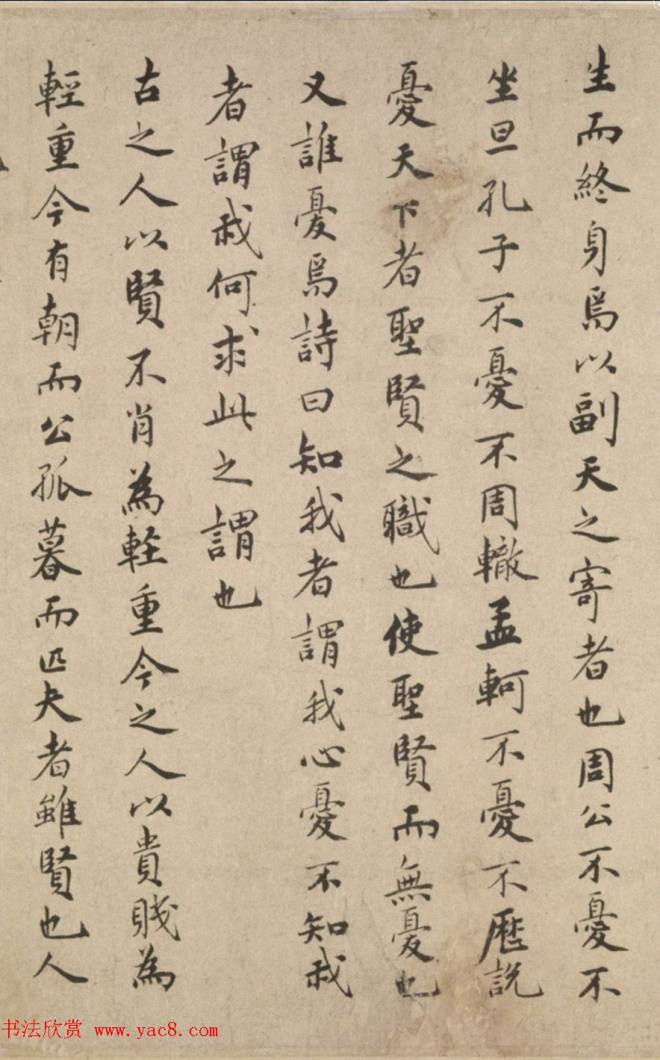 生而終身焉以副天之寄者也周公不憂不
坐旦孔子不憂不周轍孟軻不憂不歷說
憂天下者聖賢之職也使聖賢而無憂也
又誰憂焉詩曰知我者謂我心憂不知我
者謂我何求此之謂也
古之人以賢不肖為軽重今之人以貴賤為
輕重今有朝而公孤暮而匹夫者雖賢也人
书法欣赏 www.yac8.com